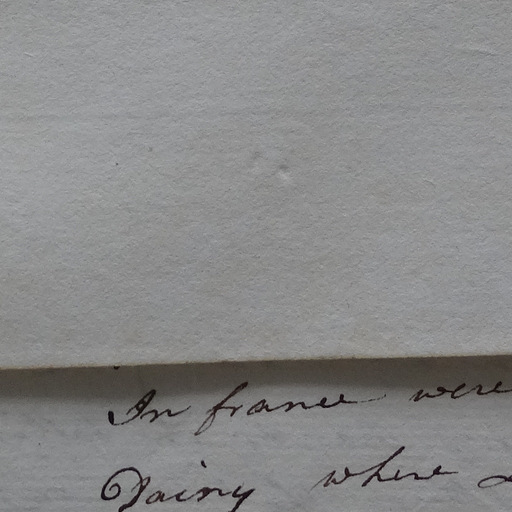 In france were
Dainy where